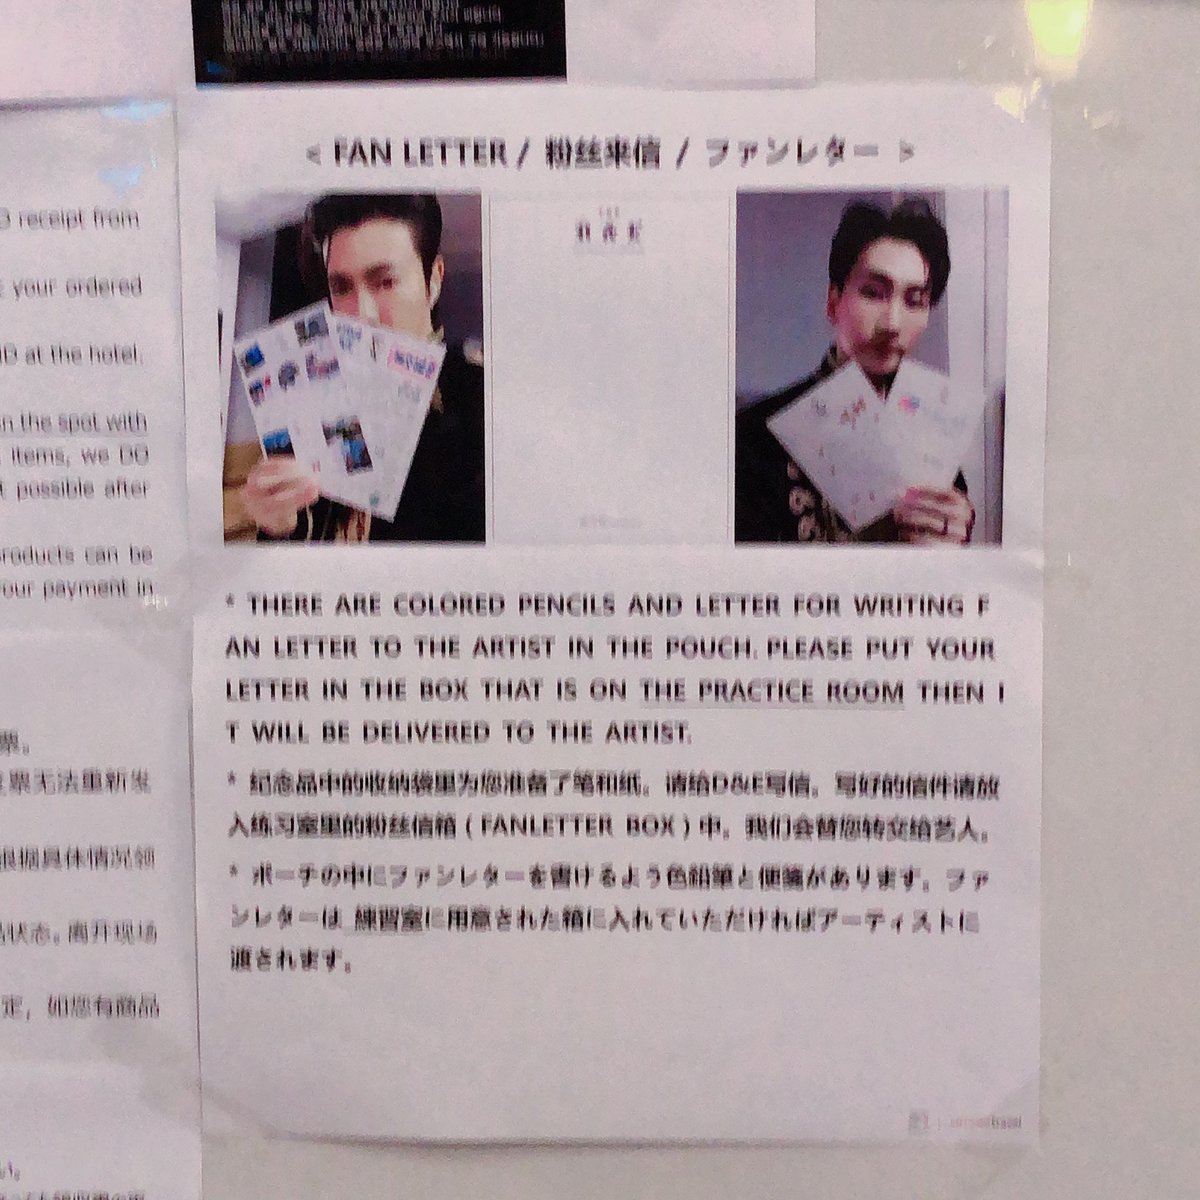 < FAN LETTER / 粉丝来信 / ファンレター >
* THERE ARE COLORED PENCILS AND LETTER FOR WRITING F
AN LETTER TO THE ARTIST IN THE POUCH. PLEASE PUT YOUR
LETTER IN THE BOX THAT IS ON THE PRACTICE ROOM THEN I
T WILL BE DELIVERED TO THE ARTIST.
* 纪念品中的收纳袋里为您准备了笔和纸。请给D&E写信。写好的信件请放
入练习室里的粉丝信箱 ( FANLETTER BOX ) 中。我们会替您转交给艺人。
* ポーチの中にファンレターを書けるよう色鉛筆と便箋があります。ファ
ンレターは 練習室に用意された箱に入れていただければアーティストに
渡されます。
receipt from
your ordered
at the hotel.
the spot with
items, we DO
possible after
products can be
your payment in
票。
票无法重新发
根据具体情况领
状态。离开现场
定，如您有商品